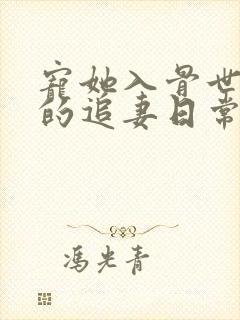 寵她入骨世
的追妻日常
馮光青